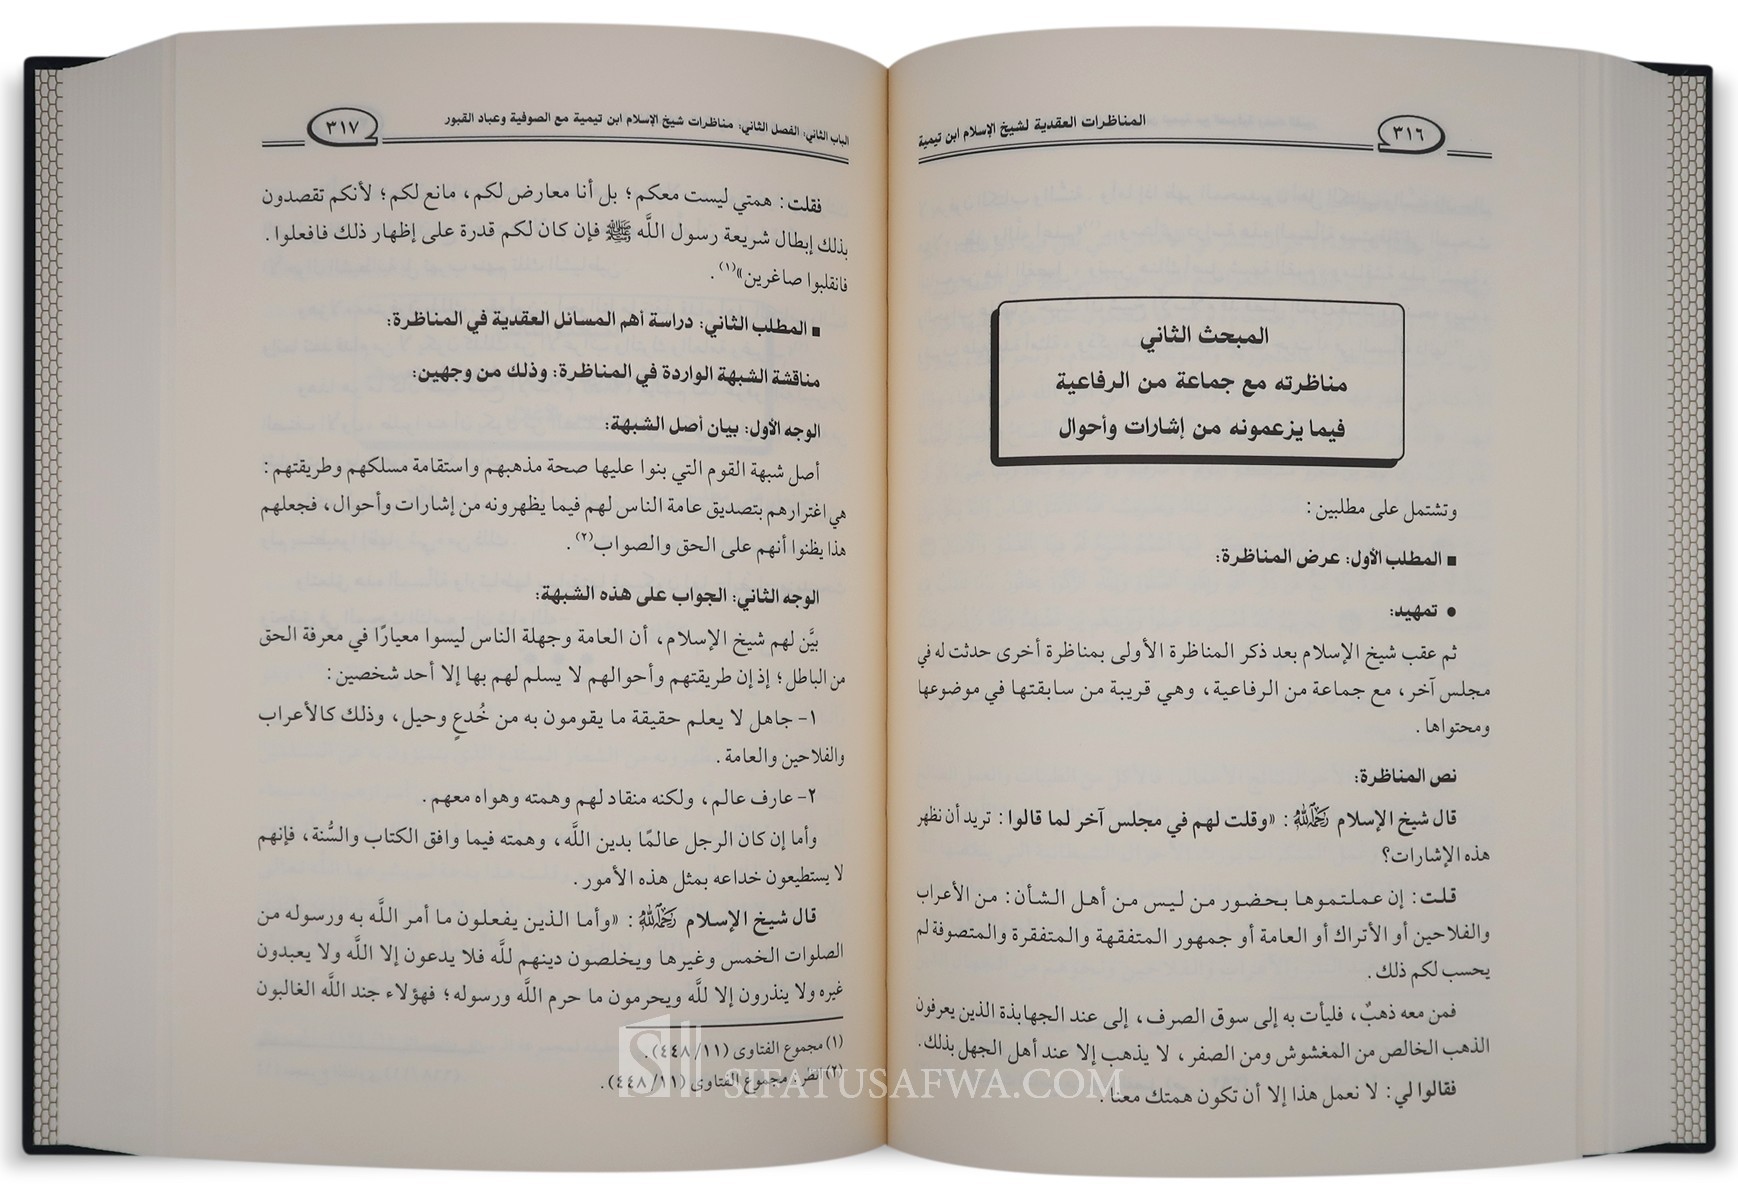 ٣١٦
المناظرات العقدية لشيخ الإسلام ابن تيمية
المبحث الثاني
مناظرته مع جماعة من الرفاعية
فيما يزعمونه من إشارات وأحوال
وتشتمل على مطلبين:
■ المطلب الأول: عرض المناظرة:
● تمهيد:
ثم عقب شيخ الإسلام بعد ذكر المناظرة الأولى بمناظرة أخرى حدثت له في
مجلس آخر، مع جماعة من الرفاعية، وهي قريبة من سابقتها في موضوعها
ومحتواها.
نص المناظرة:
قال شيخ الإسلام رَحِمَهُ اللَّهُ: «وقلت لهم في مجلس آخر لما قالوا: تريد أن نظهر
هذه الإشارات؟
قلت: إن عملتموها بحضور من ليس من أهل الشأن: من الأعراب
والفلاحين أو الأتراك أو العامة أو جمهور المتفقهة والمتفقرة والمتصوفة لم
يحسب لكم ذلك.
فمن معه ذهبٌ، فليأت به إلى سوق الصرف، إلى عند الجهابذة الذين يعرفون
الذهب الخالص من المغشوش ومن الصفر، لا يذهب إلا عند أهل الجهل بذلك.
فقالوا لي: لا نعمل هذا إلا أن تكون همتك معنا.
الباب الثاني: الفصل الثاني: مناظرات شيخ الإسلام ابن تيمية مع الصوفية وعباد القبور
٣١٧
فقلت: همتي ليست معكم؛ بل أنا معارض لكم، مانع لكم؛ لأنكم تقصدون
بذلك إبطال شريعة رسول اللَّه ﷺ فإن كان لكم قدرة على إظهار ذلك فافعلوا.
فانقلبوا صاغرين»(١).
■ المطلب الثاني: دراسة أهم المسائل العقدية في المناظرة:
مناقشة الشبهة الواردة في المناظرة: وذلك من وجهين:
الوجه الأول: بيان أصل الشبهة:
أصل شبهة القوم التي بنوا عليها صحة مذهبهم واستقامة مسلكهم وطريقتهم:
هي اغترارهم بتصديق عامة الناس لهم فيما يظهرونه من إشارات وأحوال، فجعلهم
هذا يظنوا أنهم على الحق والصواب(٢).
الوجه الثاني: الجواب على هذه الشبهة:
بيَّن لهم شيخ الإسلام، أن العامة وجهلة الناس ليسوا معيارًا في معرفة الحق
من الباطل؛ إذ إن طريقتهم وأحوالهم لا يسلم لهم بها إلا أحد شخصين:
١- جاهل لا يعلم حقيقة ما يقومون به من خُدعٍ وحيل، وذلك كالأعراب
والفلاحين والعامة.
٢- عارف عالم، ولكنه منقاد لهم وهمته وهواه معهم.
وأما إن كان الرجل عالمًا بدين اللَّه، وهمته فيما وافق الكتاب والسُّنة، فإنهم
لا يستطيعون خداعه بمثل هذه الأمور.
قال شيخ الإسلام رَحِمَهُ اللَّهُ: «وأما الذين يفعلون ما أمر اللَّه به ورسوله من
الصلوات الخمس وغيرها ويخلصون دينهم للَّه فلا يدعون إلا اللَّه ولا يعبدون
غيره ولا ينذرون إلا للَّه ويحرمون ما حرم اللَّه ورسوله؛ فهؤلاء جند اللَّه الغالبون
(١) مجموع الفتاوى (١١/ ٤٤٨).
(٢) انظر: مجموع الفتاوى (١١/ ٤٤٨).
SIFATUSAFWA.COM